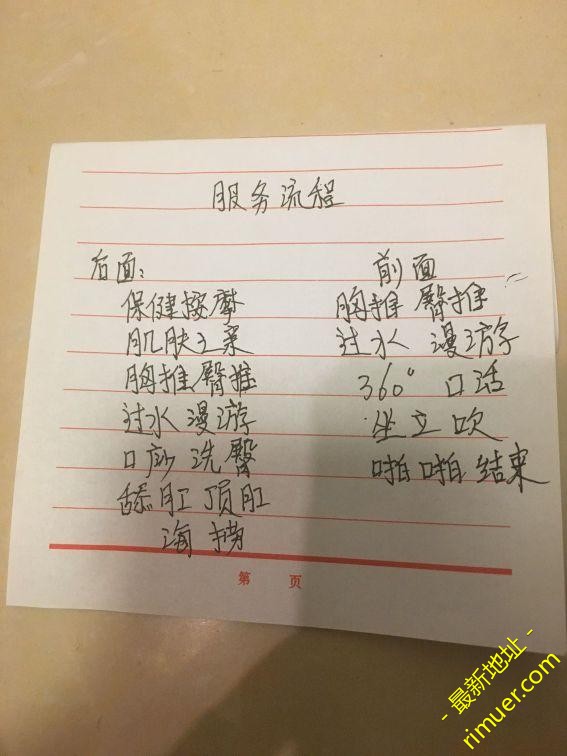 服务流程
后面：
保健按摩
肌肤之亲
胸推臀推
过水漫游
口吵洗臀
舔肛顶肛
海捞
前面
胸推臀推
过水漫游
360°口活
坐立吹
啪啪结束
第 页
-最新地址-
rimuer.com